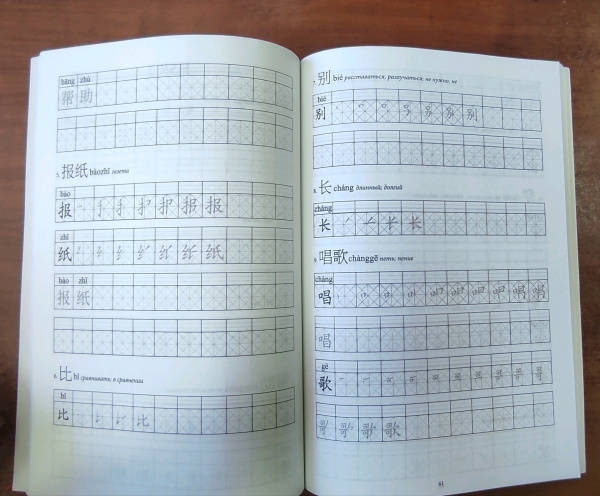 bāng zhù
帮 助
5. 报纸 bàozhǐ газета
bào
报
zhǐ
纸
bào zhǐ
报 纸
6. 比 bǐ сравнивать; в сравнении
bǐ
比
7. 别 bié расставаться, разлучаться; не нужно, не
bié
别
8. 长 cháng длинный; долгий
cháng
长
9. 唱歌 chànggē петь; пение
chàng
唱
唱
gē
歌
61